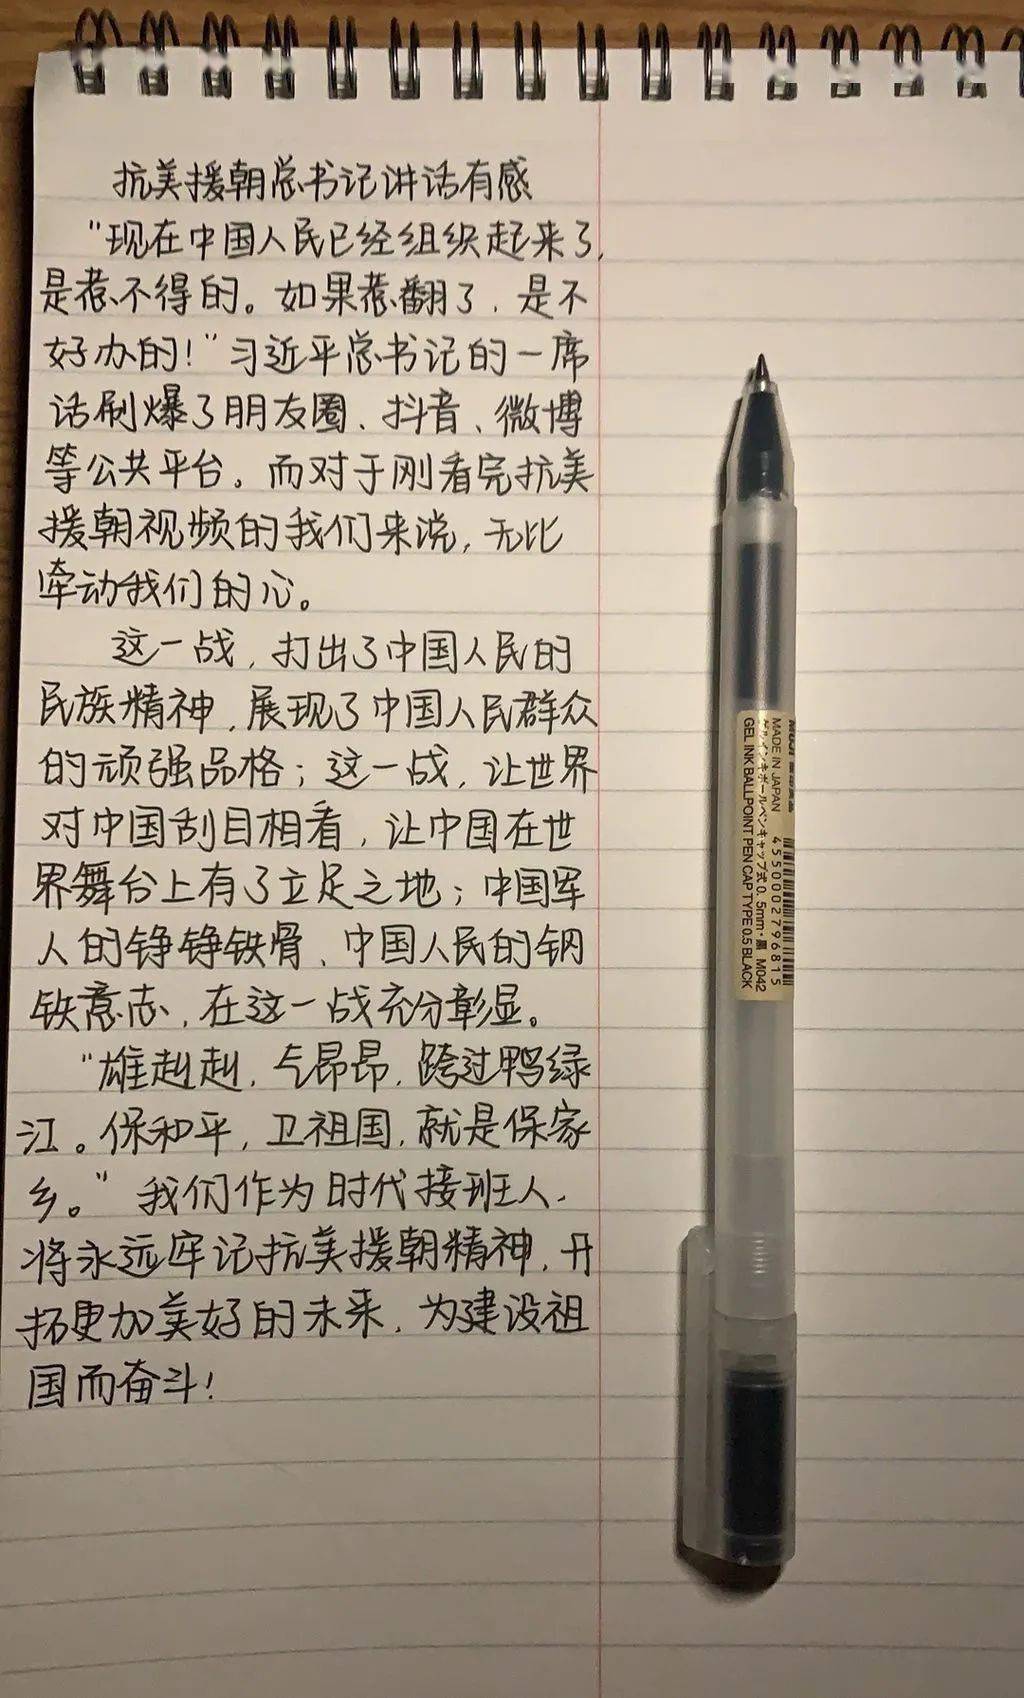 抗美援朝总书记讲话有感
“现在中国人民已经组织起来了,
是惹不得的。如果惹翻了,是不
好办的!”习近平总书记的一席
话刷爆了朋友圈、抖音、微博
等公共平台。而对于刚看完抗美
援朝视频的我们来说,无比
牵动我们的心。
这一战,打出了中国人民的
民族精神,展现了中国人民群众
的顽强品格;这一战,让世界
对中国刮目相看,让中国在世
界舞台上有了立足之地;中国军
人的铮铮铁骨、中国人民的钢
铁意志,在这一战充分彰显。
“雄赳赳,气昂昂,跨过鸭绿
江。保和平,卫祖国,就是保家
乡。”我们作为时代接班人,
将永远牢记抗美援朝精神,开
拓更加美好的未来,为建设祖
国而奋斗!
MUJI 無印良品
MADE IN JAPAN 4550002796815
ゲルインキボールペンキャップ式0.5mm・黒 M042
GEL INK BALLPOINT PEN CAP TYPE 0.5 BLACK